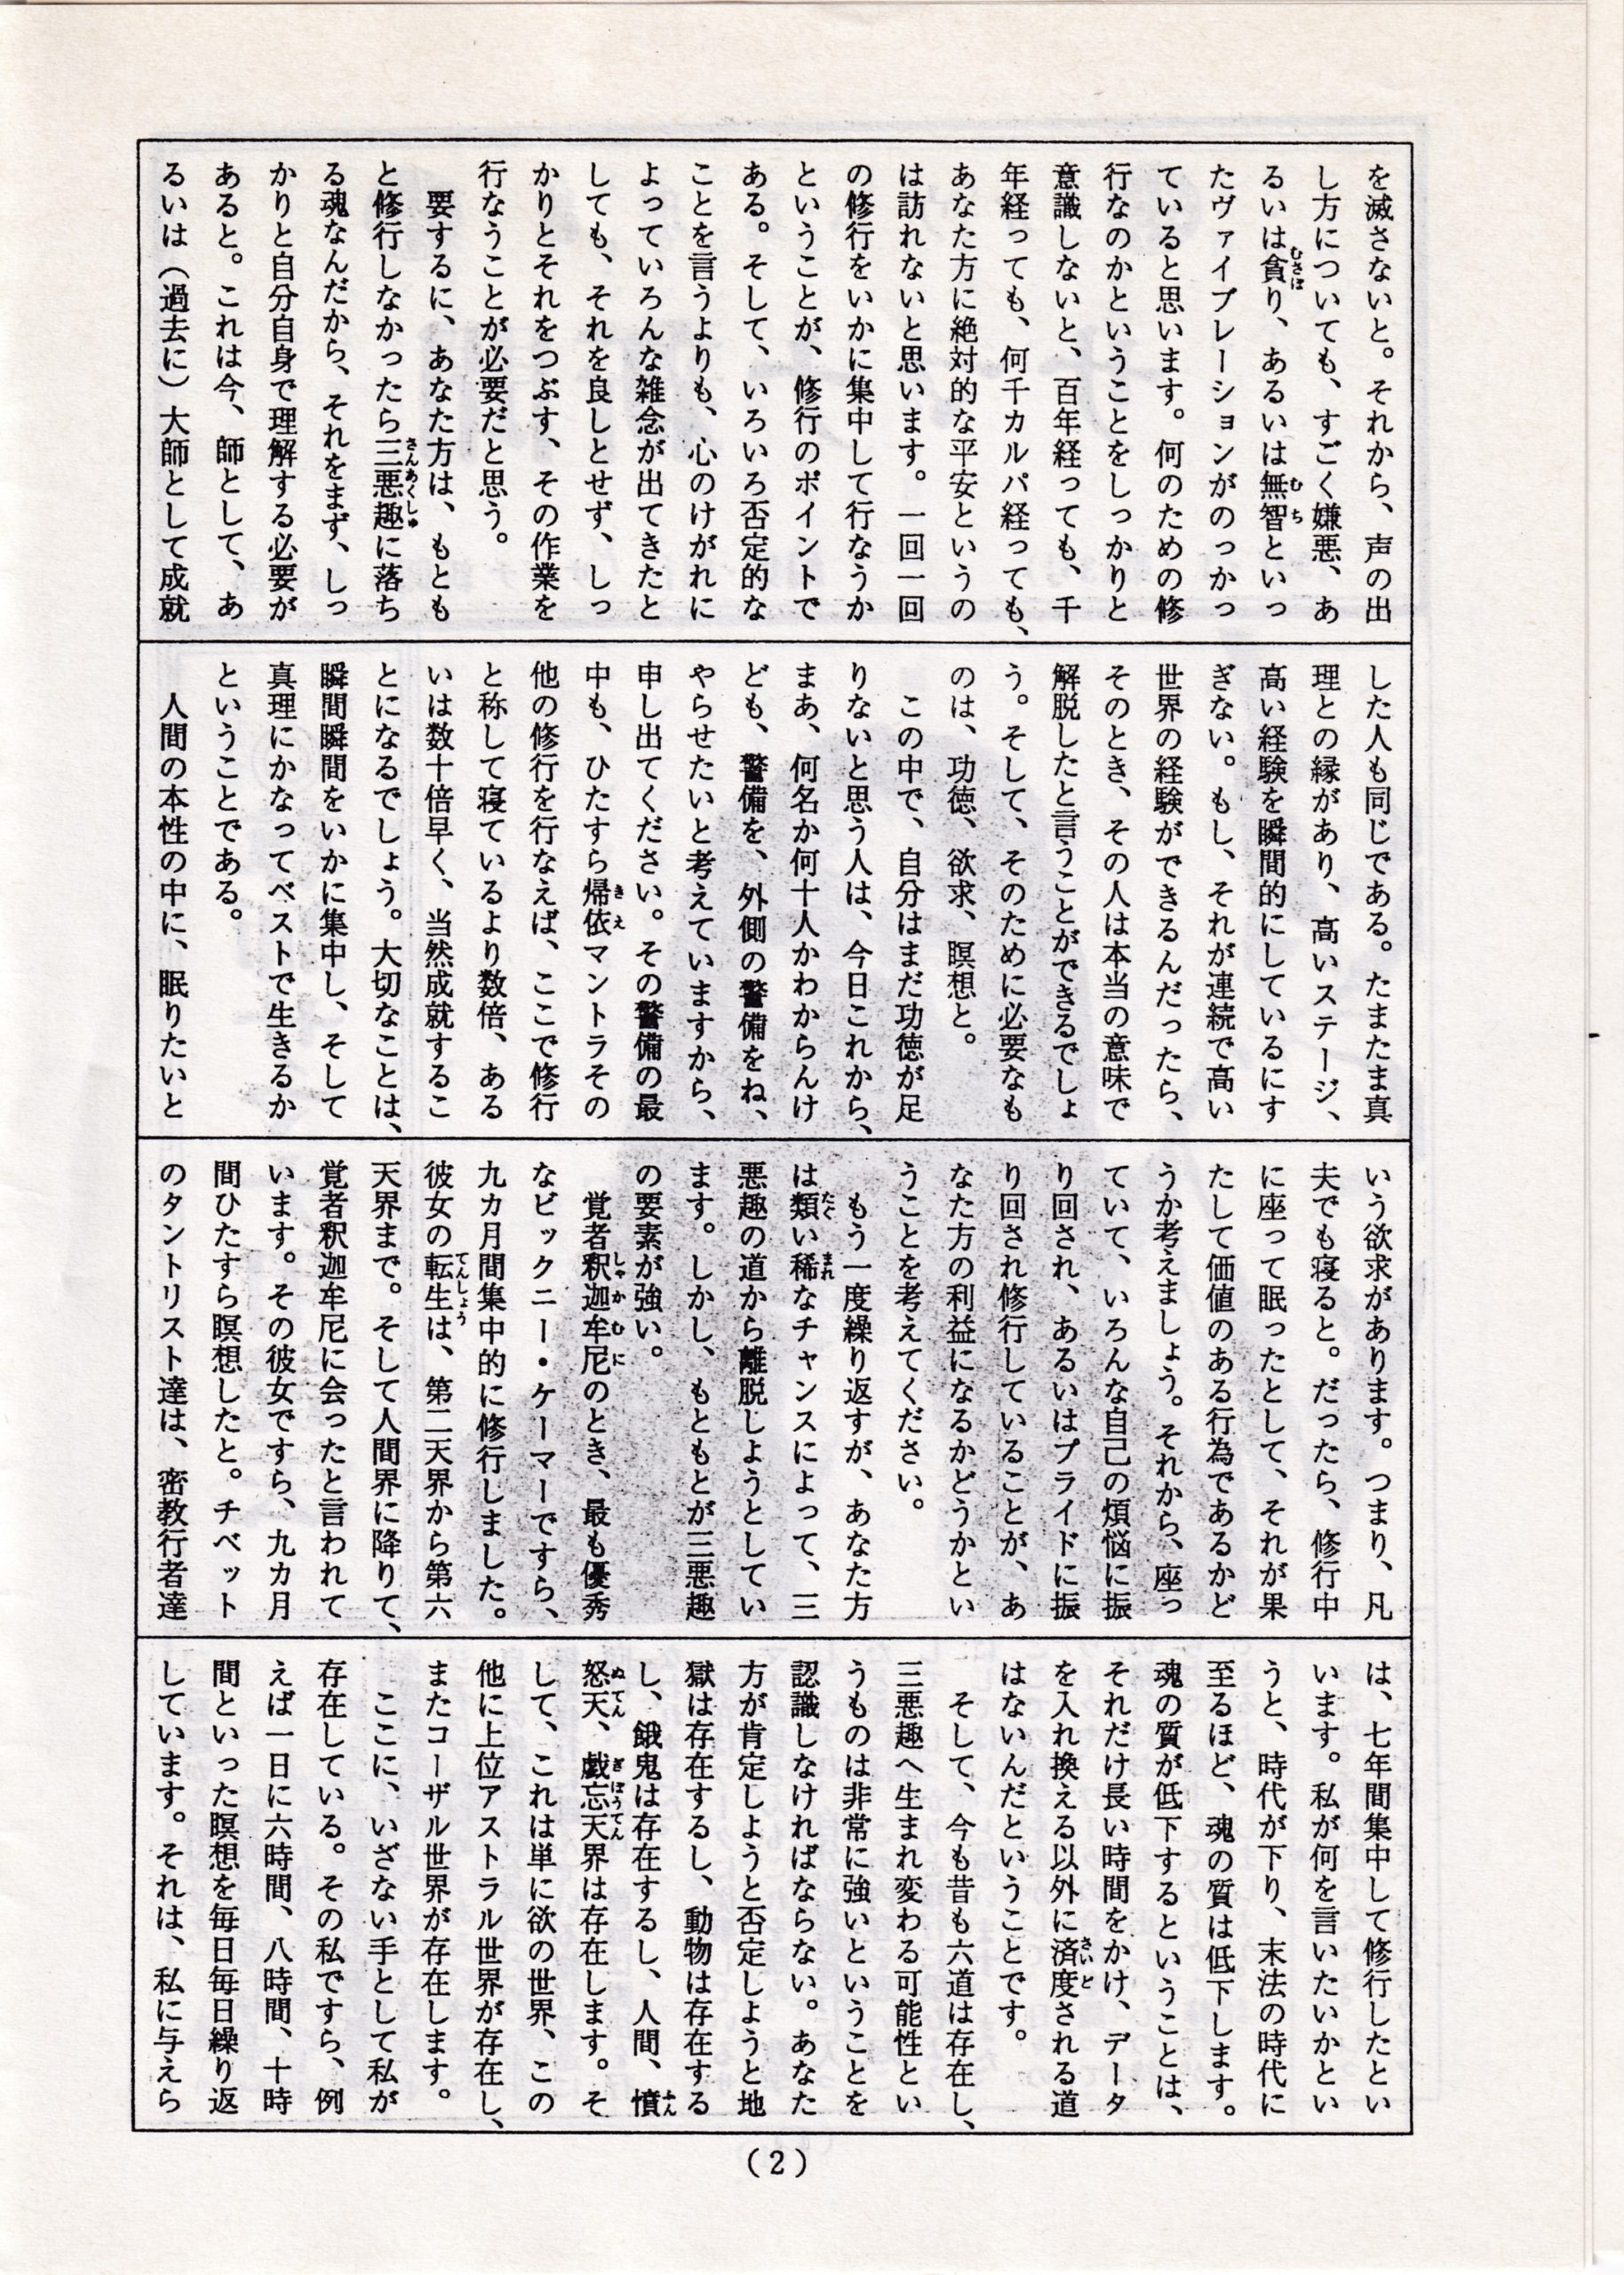 を滅さないと。それから、声の出
し方についても、すごく嫌悪、あ
るいは貪り、あるいは無智といっ
たヴァイブレーションがのっかっ
ていると思います。何のための修
行なのかということをしっかりと
意識しないと、百年経っても、千
年経っても、何千カルパ経っても、
あなた方に絶対的な平安というの
は訪れないと思います。一回一回
の修行をいかに集中して行なうか
ということが、修行のポイントで
ある。そして、いろいろ否定的な
ことを言うよりも、心のけがれに
よっていろんな雑念が出てきたと
しても、それを良しとせず、しっ
かりとそれをつぶす、その作業を
行なうことが必要だと思う。
要するに、あなた方は、もとも
と修行しなかったら三悪趣に落ち
る魂なんだから、それをまず、しっ
かりと自分自身で理解する必要が
あると。これは今、師として、あ
るいは（過去に）大師として成就
した人も同じである。たまたま真
理との縁があり、高いステージ、
高い経験を瞬間的にしているにす
ぎない。もし、それが連続で高い
世界の経験ができるんだったら、
そのとき、その人は本当の意味で
解脱したと言うことができるでしょ
う。そして、そのために必要なも
のは、功徳、欲求、瞑想と。
この中で、自分はまだ功徳が足
りないと思う人は、今日これから、
まあ、何名か何十人かわからんけ
ども、警備を、外側の警備をね、
やらせたいと考えていますから、
申し出てください。その警備の最
中も、ひたすら帰依マントラその
他の修行を行なえば、ここで修行
と称して寝ているより数倍、ある
いは数十倍早く、当然成就するこ
とになるでしょう。大切なことは、
瞬間瞬間をいかに集中し、そして
真理にかなってベストで生きるか
ということである。
人間の本性の中に、眠りたいと
いう欲求があります。つまり、凡
夫でも寝ると。だったら、修行中
に座って眠ったとして、それが果
たして価値のある行為であるかど
うか考えましょう。それから、座っ
ていて、いろんな自己の煩悩に振
り回され、あるいはプライドに振
り回され修行していることが、あ
なた方の利益になるかどうかとい
うことを考えてください。
もう一度繰り返すが、あなた方
は類い稀なチャンスによって、三
悪趣の道から離脱しようとしてい
ます。しかし、もともとが三悪趣
の要素が強い。
覚者釈迦牟尼のとき、最も優秀
なビックニー・ケーマーですら、
九カ月間集中的に修行しました。
彼女の転生は、第二天界から第六
天界まで。そして人間界に降りて、
覚者釈迦牟尼に会ったと言われて
います。その彼女ですら、九カ月
間ひたすら瞑想したと。チベット
のタントリスト達は、密教行者達
は、七年間集中して修行したとい
います。私が何を言いたいかとい
うと、時代が下り、末法の時代に
至るほど、魂の質は低下します。
魂の質が低下するということは、
それだけ長い時間をかけ、データ
を入れ換える以外に済度される道
はないんだということです。
そして、今も昔も六道は存在し、
三悪趣へ生まれ変わる可能性とい
うものは非常に強いということを
認識しなければならない。あなた
方が肯定しようと否定しようと地
獄は存在するし、動物は存在する
し、餓鬼は存在するし、人間、憤
怒天、戯忘天界は存在します。そ
して、これは単に欲の世界、この
他に上位アストラル世界が存在し、
またコーザル世界が存在します。
ここに、いざない手として私が
存在している。その私ですら、例
えば一日に六時間、八時間、十時
間といった瞑想を毎日毎日繰り返
しています。それは、私に与えら
(2)